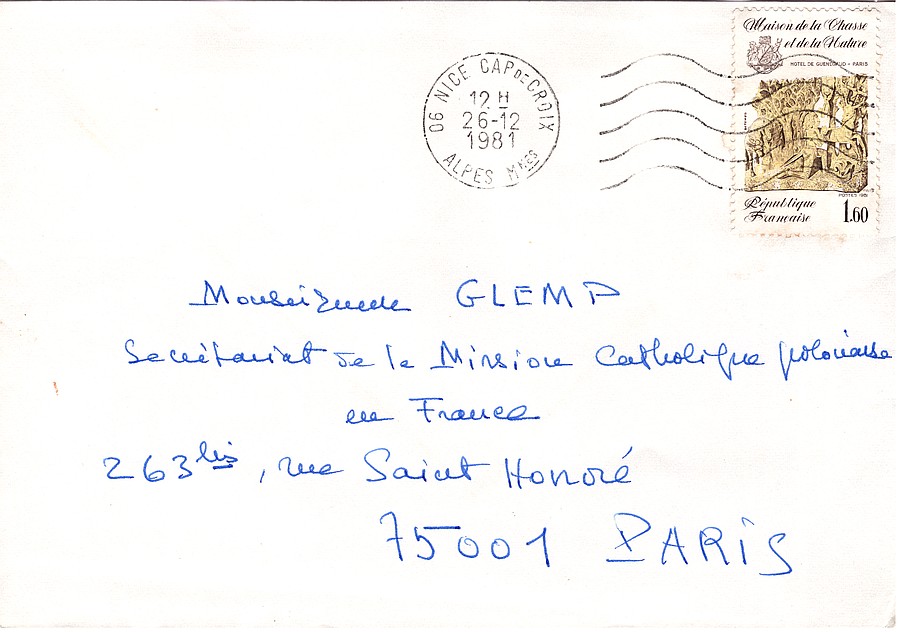 Maison de la Chasse
et de la Nature
HOTEL DE GUENEGAUD - PARIS
06 NICE CAP DE CROIX
12 H
26-12
1981
ALPES MMES
POSTES 1981
République
Française
1.60
Monseigneur GLEMP
Secrétariat de la Mission Catholique polonaise
en France
263 bis, rue Saint Honoré
75001 PARIS